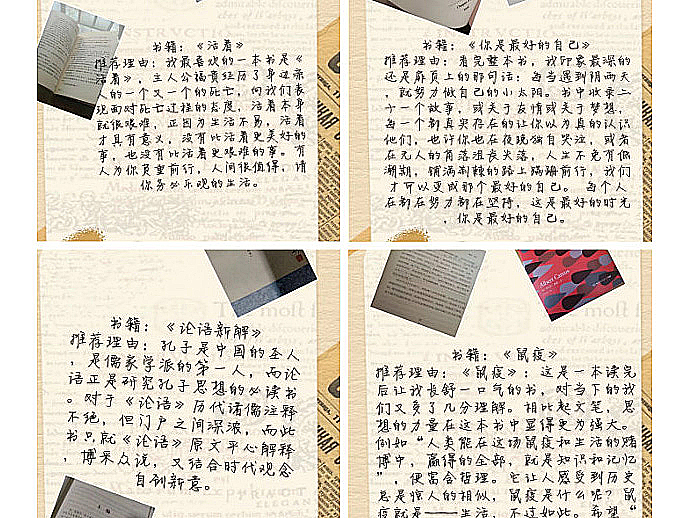 书籍：《活着》
推荐理由：我最喜欢的一本书是《
活着》，主人公福贵经历了身边亲
人的一个又一个的死亡，向我们表
现面对死亡过程的态度，活着本身
就很艰难，正因为生活不易，活着
才具有意义，没有比活着更美好的
事，也没有比活着更艰难的事。有
人为你负重前行，人间很值得，请
你务必乐观的生活。
书籍：《你是最好的自己》
推荐理由：看完整本书，我印象最深的
还是扉页上的那句话：每当遇到阴雨天
，就努力做自己的小太阳。书中收录二
十一个故事，或关于友情或关于梦想，
每一个都真实存在的让你以为真的认识
他们，也许你也在夜晚独自哭泣，或者
在无人的角落沮丧失落，人生不免有低
潮期，铺满荆棘的路上蹒跚前行，我们
才可以变成那个最好的自己。每个人
在都在努力都在坚持，这是最好的时光
，你是最好的自己。
书籍：《论语新解》
推荐理由：孔子是中国的圣人
，是儒家学派的第一人，而论
语正是研究孔子思想的必读书
。对于《论语》历代诸儒注释
不绝，但门户之间深派，而此
书只就《论语》原文平心解释
，博采众说，又结合时代观念
自创新意。
Albert Camus
书籍：《鼠疫》
推荐理由：《鼠疫》：这是一本读完
后让我长舒一口气的书，对当下的我
们又多了几分理解。相比起文笔，思
想的力量在这本书中显得更为强大。
例如“人类能在这场鼠疫和生活的赌
博中，赢得的全部，就是知识和记忆
”，便富含哲理。它让人感受到历史
总是惊人的相似，鼠疫是什么呢？鼠
疫就是——生活，不过如此。希望“